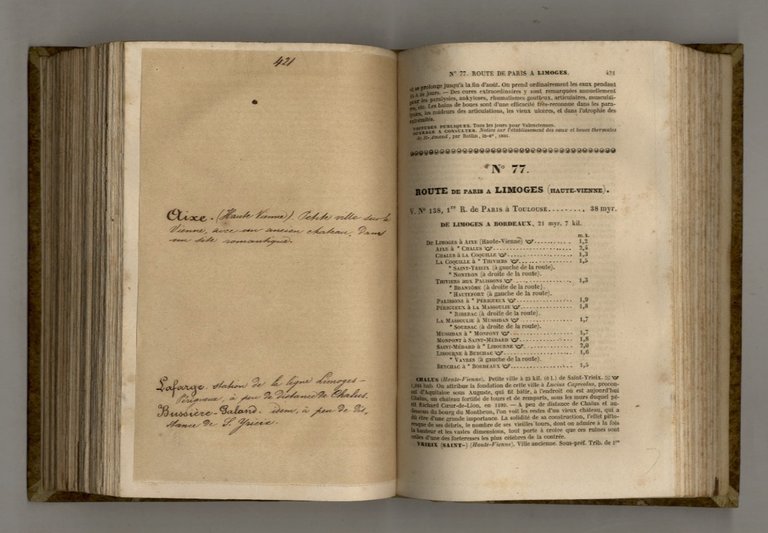 421
Aixe. (Haute Vienne). Petite ville sur la
Vienne, avec un ancien chateau, dans
un site romantique.
Lafarge. station de la ligne Limoges-
Périgueux, à peu de distance de Chalus.
Bussière-Galand. idem, à peu de dis-
tance de St Yrieix.
N° 77. ROUTE DE PARIS A LIMOGES. 421
et se prolonge jusqu'à la fin d'août. On prend ordinairement les eaux pendant
15 à 20 jours. — Des cures extraordinaires y sont remarquées annuellement
pour les paralysies, ankyloses, rhumatismes goutteux, articulaires, musculai-
res, etc. Les bains de boues sont d'une efficacité très-reconnue dans les para-
lysies, les roideurs des articulations, les vieux ulcères, et dans l'atrophie des
extrémités.
VOITURES PUBLIQUES. Tous les jours pour Valenciennes.
OUVRAGE A CONSULTER. Notice sur l'établissement des eaux et boues thermales
de St-Amand, par Bottin, in-8°, 1805.
N° 77.
ROUTE DE PARIS A LIMOGES (HAUTE-VIENNE).
V. N° 138, 1re R. de PARIS à TOULOUSE........, 38 myr.
DE LIMOGES A BORDEAUX, 21 myr. 7 kil.
m.k.
DE LIMOGES à AIXE (Haute-Vienne) 1,2
AIXE à * CHALUS 2,4
CHALUS à LA COQUILLE 1,3
LA COQUILLE à * THIVIERS 1,5
* SAINT-YRIEIX (à gauche de la route).
* NONTRON (à droite de la route).
THIVIERS AUX PALISSONS 1,3
* BRANTÔME (à droite de la route).
* HAUTEFORT (à gauche de la route).
PALISSONS à * PÉRIGUEUX 1,9
PÉRIGUEUX à LA MASSOULIE 1,8
* RIBERAC (à droite de la route).
LA MASSOULIE à MUSSIDAN 1,7
* SOURZAC (à droite de la route).
MUSSIDAN à * MONPONT 1,7
MONPONT à SAINT-MÉDARD 1,8
SAINT-MÉDARD à * LIBOURNE 2,0
LIBOURNE à BEYCHAC 1,6
* VAYRES (à gauche de la route).
BEYCHAC à * BORDEAUX 1,5
CHALUS (Haute-Vienne). Petite ville à 23 kil. de Saint-Yrieix.
hab. On attribue la fondation de cette ville à Lucius Capreolus, procon-
sul d'Aquitaine sous Auguste, qui fit bâtir, à l'endroit où est aujourd'hui
Chalus, un château fortifié de tours et de remparts, sous les murs duquel pé-
rit Richard Cœur-de-Lion, en 1199. — A peu de distance de Chalus et au-
dessous du bourg du Montbrun, l'on voit les restes d'un vieux château, qui a
dû être d'une grande importance. La solidité de sa construction, l'effet pitto-
resque de ses débris, le nombre de ses vieilles tours, dont on admire à la fois
la hauteur et les vastes dimensions, tout porte à croire que ces ruines sont
celles d'une des forteresses les plus célèbres de la contrée.
YRIEIX (SAINT-) (Haute-Vienne). Ville ancienne. Sous-préf. Trib. de 1re